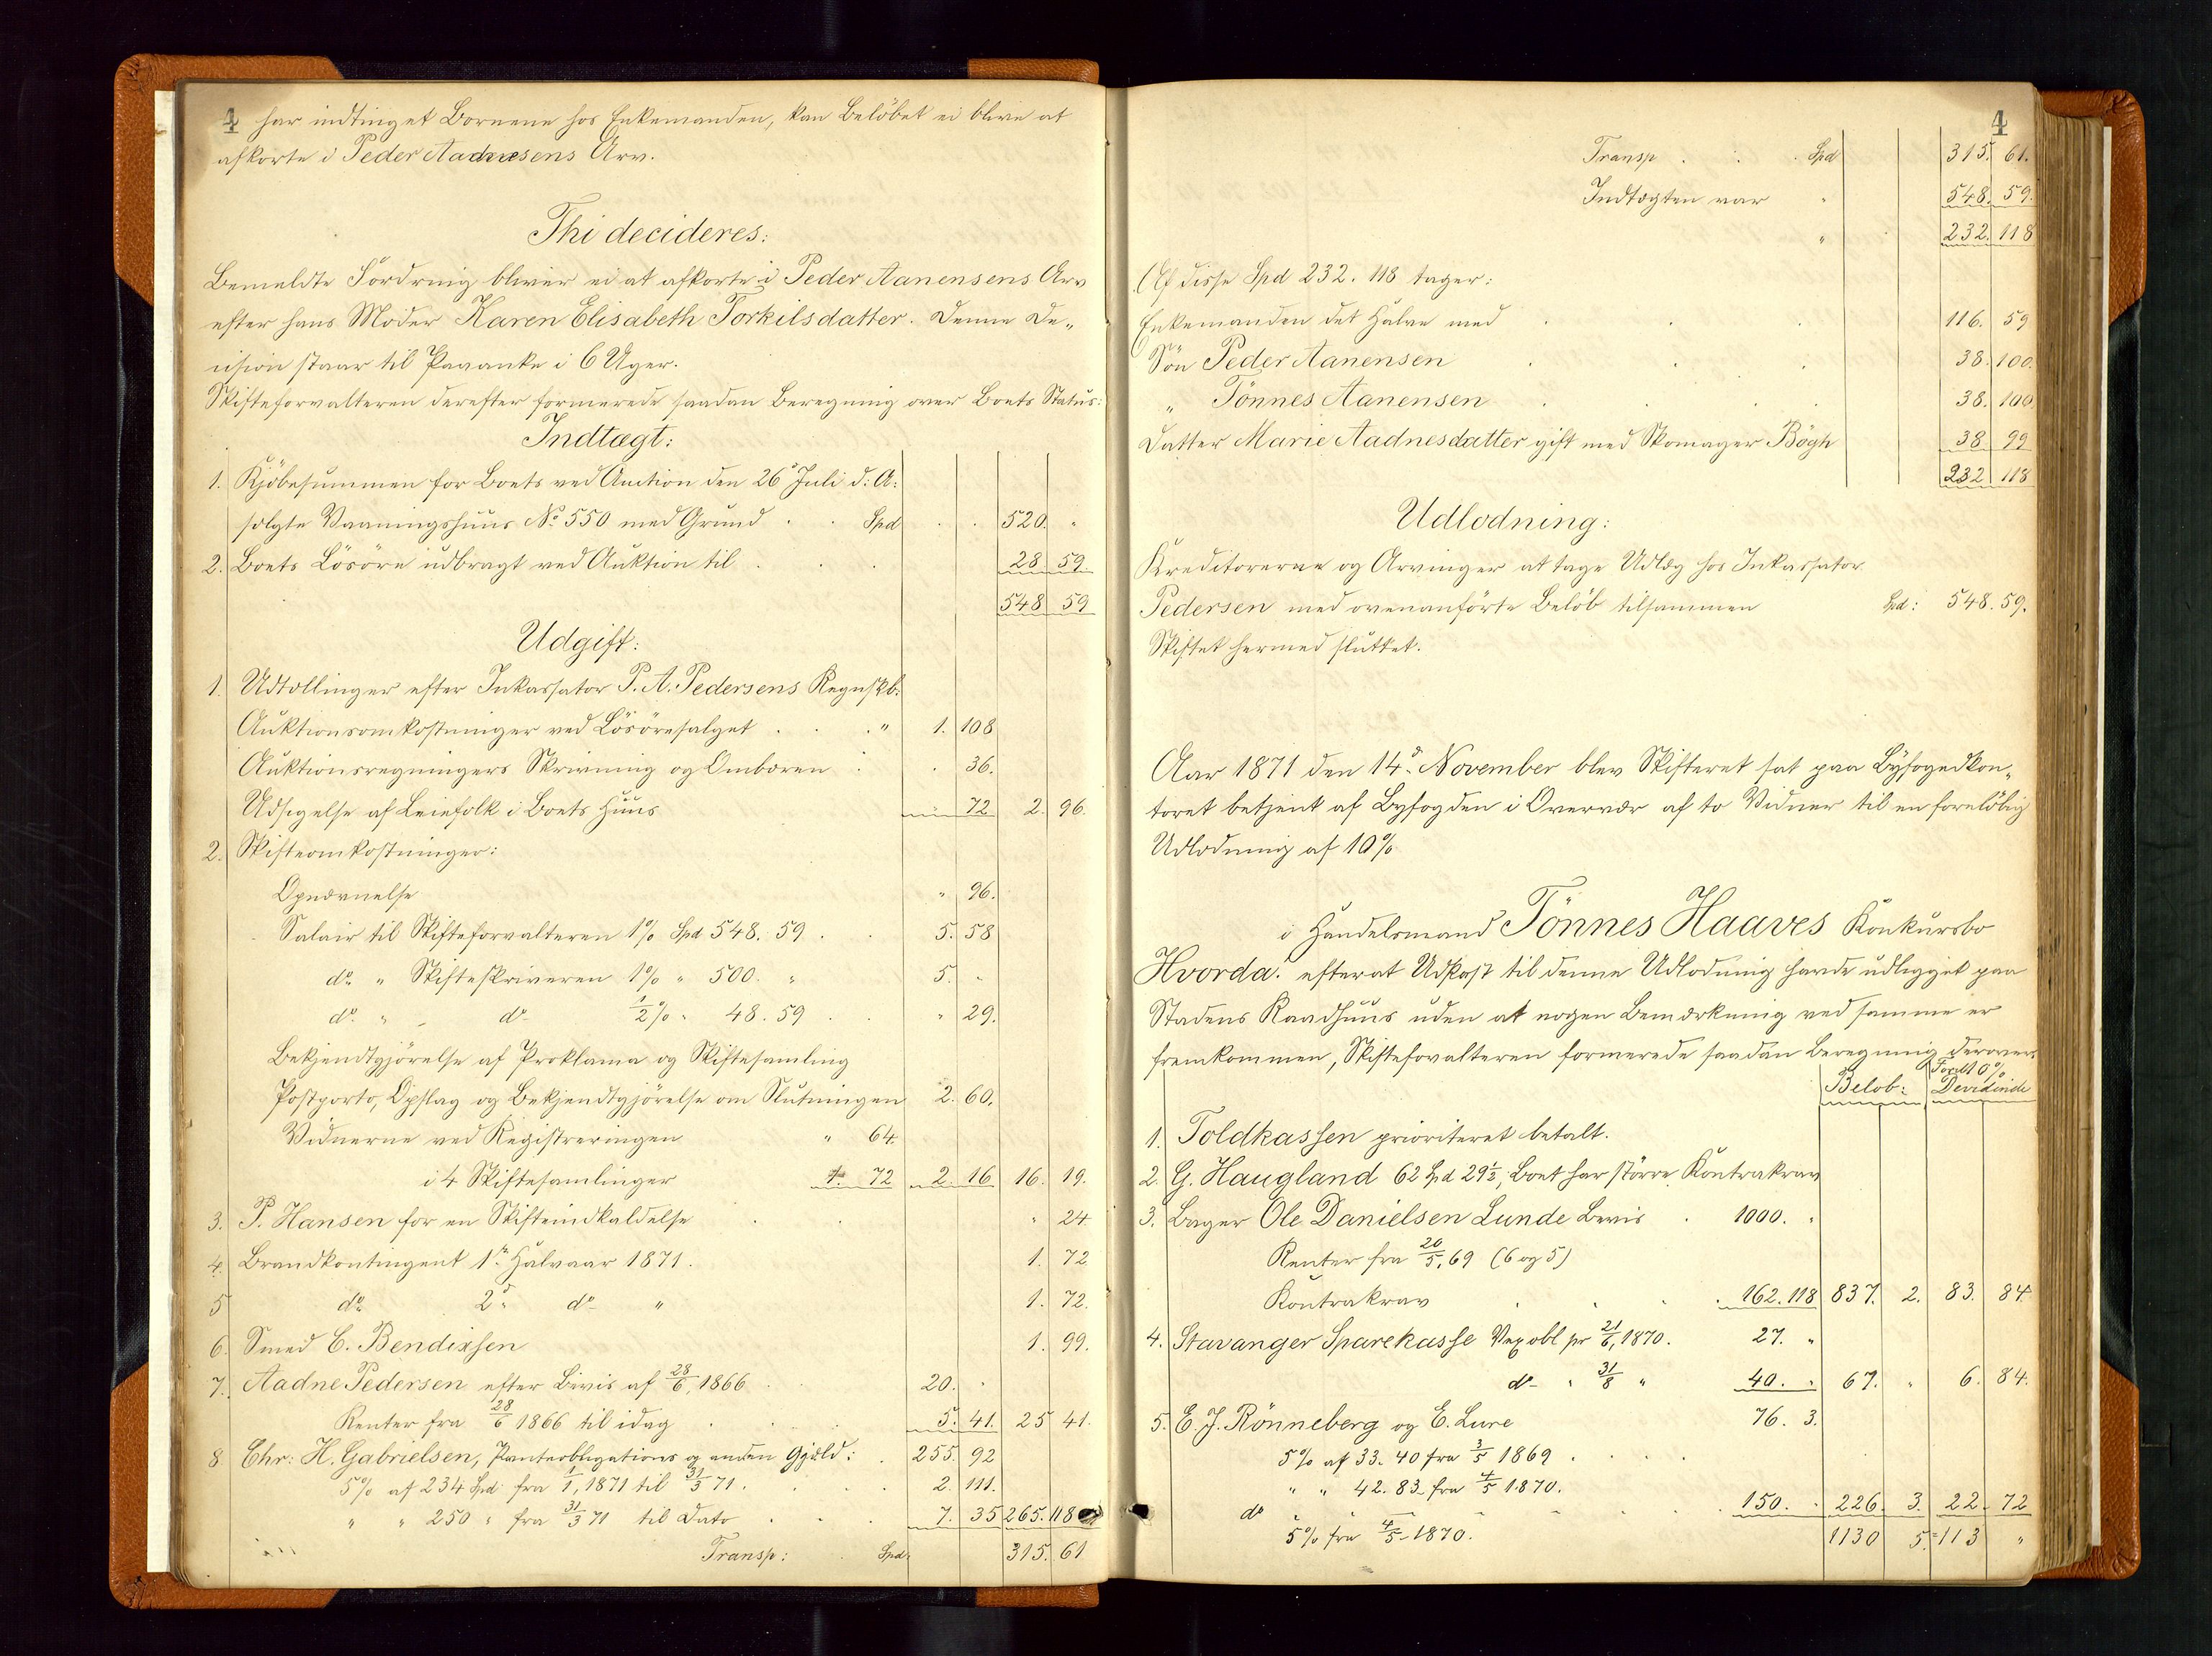 4 har indtinget Børnene hos Enkemanden, kan Beløbet ei blive at
afkorte i Peder Aadnesens Arv.
Thi decideres:
Bemeldte Fordring bliver ei at afkorte i Peder Aanensens Arv
efter hans Moder Karen Elisabeth Torkilsdatter. Denne De„
cision staar til Paaanke i 6 Uger.
Skifteforvalteren derefter formerede saadan Beregning over Boets Status:
Indtægt:
1. Kjöbesummen for Boets ved Auction den 26de Juli d: A:
solgte Vaaningshuus No 550 med Grund . . Spd . . 520. "
2. Boets Lösöre udbragt ved Auktion til . . . 28 59
548 59
Udgift:
1. Udtællinger efter Inkassator P. A. Pedersens Regnskb:
Auktionsomkostninger ved Lösöresalget . . . " 1. 108
Auktionsregningers Skrivning og Ombæren . . 36.
Udsigelse af Leiefolk i Boets Huus " 72 2. 96.
2. Skifteomkostninger:
Opnævnelse " 96.
Salair til Skifteforvalteren 1% Spd 548. 59 . . 5. 58
do " Skifteskriveren 1% " 500. " 5. "
do " do ½% " 48. 59 . . " 29.
Bekjendtgjörelse af Proklama og Skiftesamling
Postporto, Opslag og Bekjendtgjörelse om Slutningen 2. 60.
Vidnerne ved Registreringen " 64.
i 4 Skiftesamlinger 1. 72 2. 16 16. 19.
3. P. Hansen for en Skifteindkaldelse . . " 24
4. Brandkontingent 1ste Halvaar 1871. 1. 72
5 do 2det do " 1. 72.
6. Smed C. Bendixsen 1. 99.
7. Aadne Pedersen efter Bevis af 28/6, 1866 . 20. "
Renter fra 28/6 1866 til idag . . . 5. 41. 25 41.
8 Chr: H. Gabrielsen, Panteobligations og anden Gjæld: . 255. 92
5% af 234 Spd fra 1/1, 1871 til 31/3 71. . . . 2. 111.
" " 250 " fra 31/3 71 til Dato . . . 7. 35 265. 118
Transp: . Spd: 315. 61
4
Transp . . . Spd 315. 61.
Indtægten var " 548. 59.
" 232. 118
Af disse Spd 232. 118 tager:
Enkemanden det Halve med . . . 116. 59
Sön Peder Aanensen . . . 38. 100.
" Tönnes Aanensen . . . 38. 100.
Datter Marie Aadnesdatter gift med Skomager Bögh 38. 99
232 118
Udlodning:
Kreditorerne og Arvinger at tage Udlæg hos Inkassator
Pedersen med ovenanförte Belöb tilsammen Spd: 548. 59.
Skiftet hermed sluttet.
Aar 1871 den 14de November blev Skifteret sat paa Byfogedkon„
toret betjent af Byfogden i Overvær af to Vidner til en forelöbig
Udlodning af 10%
i Handelsmand Tönnes Haaves Konkursbo
Hvorda: efterat Udkast til denne Udlodning havde udligget paa
Stadens Raadhuus uden at nogen Bemærkning ved samme er
fremkommen, Skifteforvalteren formerede saadan Beregning derover:
Belob: Foreløb 10% Devidende
1. Toldkassen prioriteret betalt.
2. G. Haugland 62 Spd 29½, Boet har större Kontrakrav
3. Bager Ole Danielsen Lunde Bevis . 1000. "
Renter fra 20/5. 69 (6 og 5)
Kontrakrav . . . 162. 118 837. 2. 83. 84.
4. Stavanger Sparekasse Vexobl pr 21/6, 1870. 27. "
do " 31/8 " 40. " 67. " 6. 84.
5. E. J. Rönneberg og E. Lure 76. 3.
5% af 33. 40 fra 3/5 1869 . . . .
" " 42. 83 fra 4/5 1870.
do . . . . 150. " 226. 3. 22. 72
5% fra 4/5 1870. 1130 5. 113 "